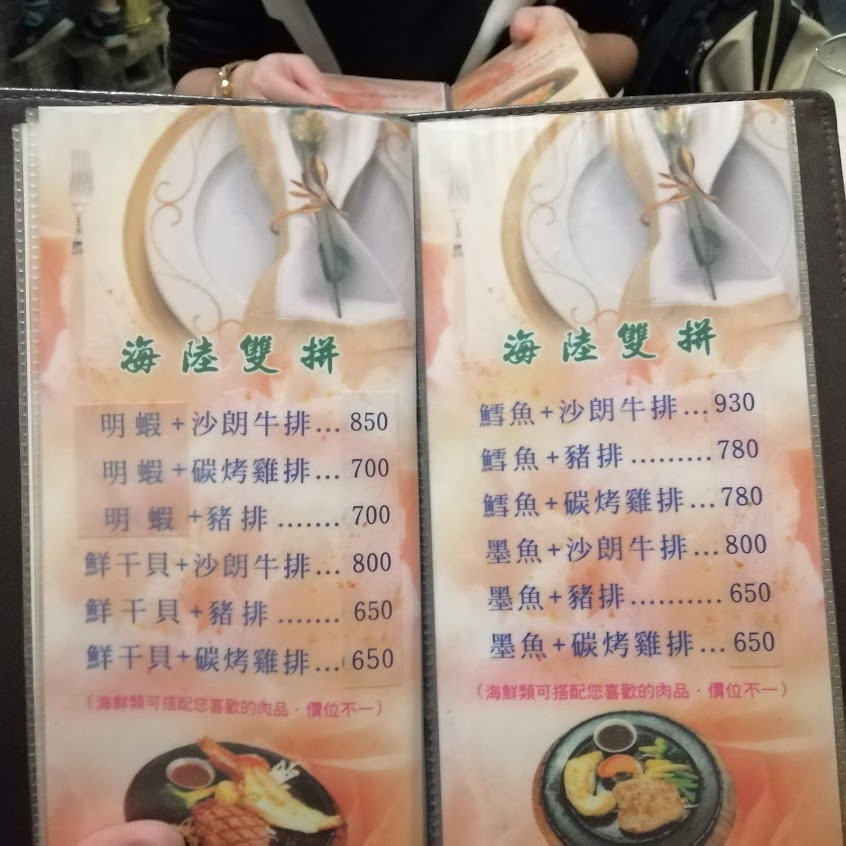 海陸雙拼
明蝦+沙朗牛排...850
明蝦+碳烤雞排...700
明蝦+豬排.......700
鮮干貝+沙朗牛排...800
鮮干貝+豬排.......650
鮮干貝+碳烤雞排...650
(海鮮類可搭配您喜歡的肉品·價位不一)
海陸雙拼
鱈魚+沙朗牛排...930
鱈魚+豬排.........780
鱈魚+碳烤雞排...780
墨魚+沙朗牛排...800
墨魚+豬排..........650
墨魚+碳烤雞排...650
(海鮮類可搭配您喜歡的肉品·價位不一)